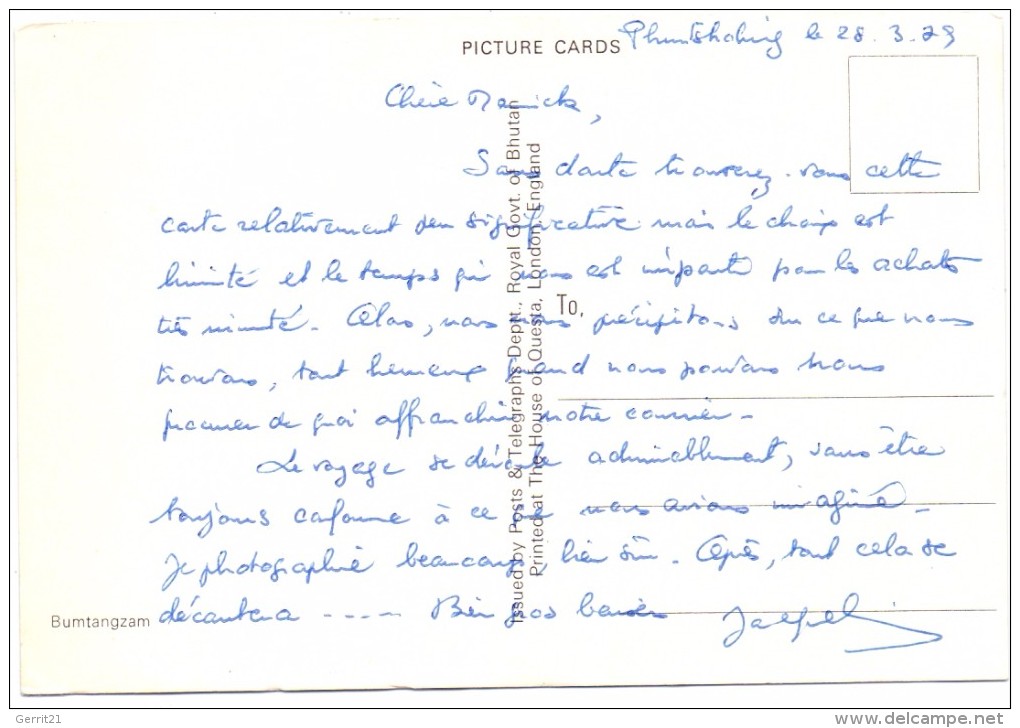 PICTURE CARDS
Phuntsholing le 28.3.79
Chère
Sans doute trouverez-vous cette
carte relativement peu significative mais le choix est
limité et le temps qui nous est imparti pour les achats
très minuté. Alors, nous nous précipitons sur ce que nous
trouvons, tout heureux quand nous pouvons nous
procurer de quoi affranchir notre courrier -
Le voyage se déroule admirablement, sans être
toujours conforme à ce que nous avions imaginé -
Je photographie beaucoup, bien sûr. Après, tout cela se
décantera ---- Bien gros baisers
To,
Issued by Posts & Telegraphs Deptt., Royal Govt. of Bhutan
Printed at The House of Questa, London, England
Bumtangzam
Gerrit21
www.delcampe.net